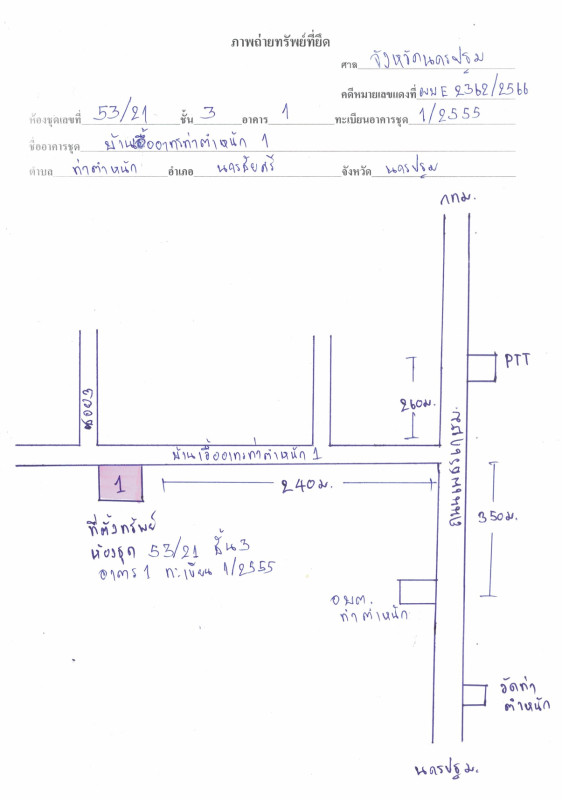 ภาพถ่ายทรัพย์ที่ยึด
ศาล จังหวัดนครปฐม
คดีหมายเลขแดงที่ ผบE 2362/2566
ห้องชุดเลขที่ 53/21 ชั้น 3 อาคาร 1 ทะเบียนอาคารชุด 1/2555
ชื่ออาคารชุด บ้านเอื้ออาทรท่าตำหนัก 1
ตำบล ท่าตำหนัก อำเภอ นครชัยศรี จังหวัด นครปฐม
กทม.
PTT
260ม.
ซอย3
บ้านเอื้ออาทรท่าตำหนัก 1
1
240ม.
350ม.
ที่ตั้งทรัพย์
ห้องชุด 53/21 ชั้น3
อาคาร 1 ทะเบียน 1/2555
อบต.
ท่าตำหนัก
วัดท่า
ตำหนัก
นครปฐม.